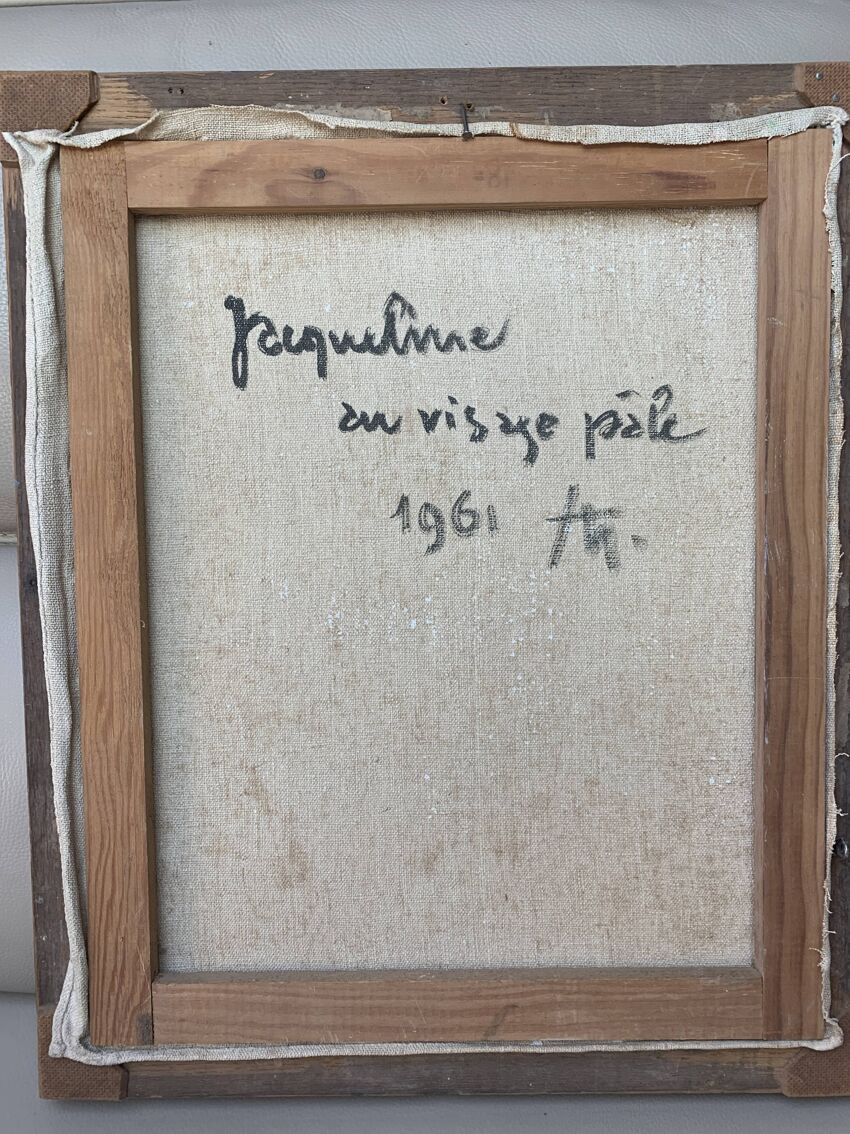 Jacqueline
au visage pâle
1961